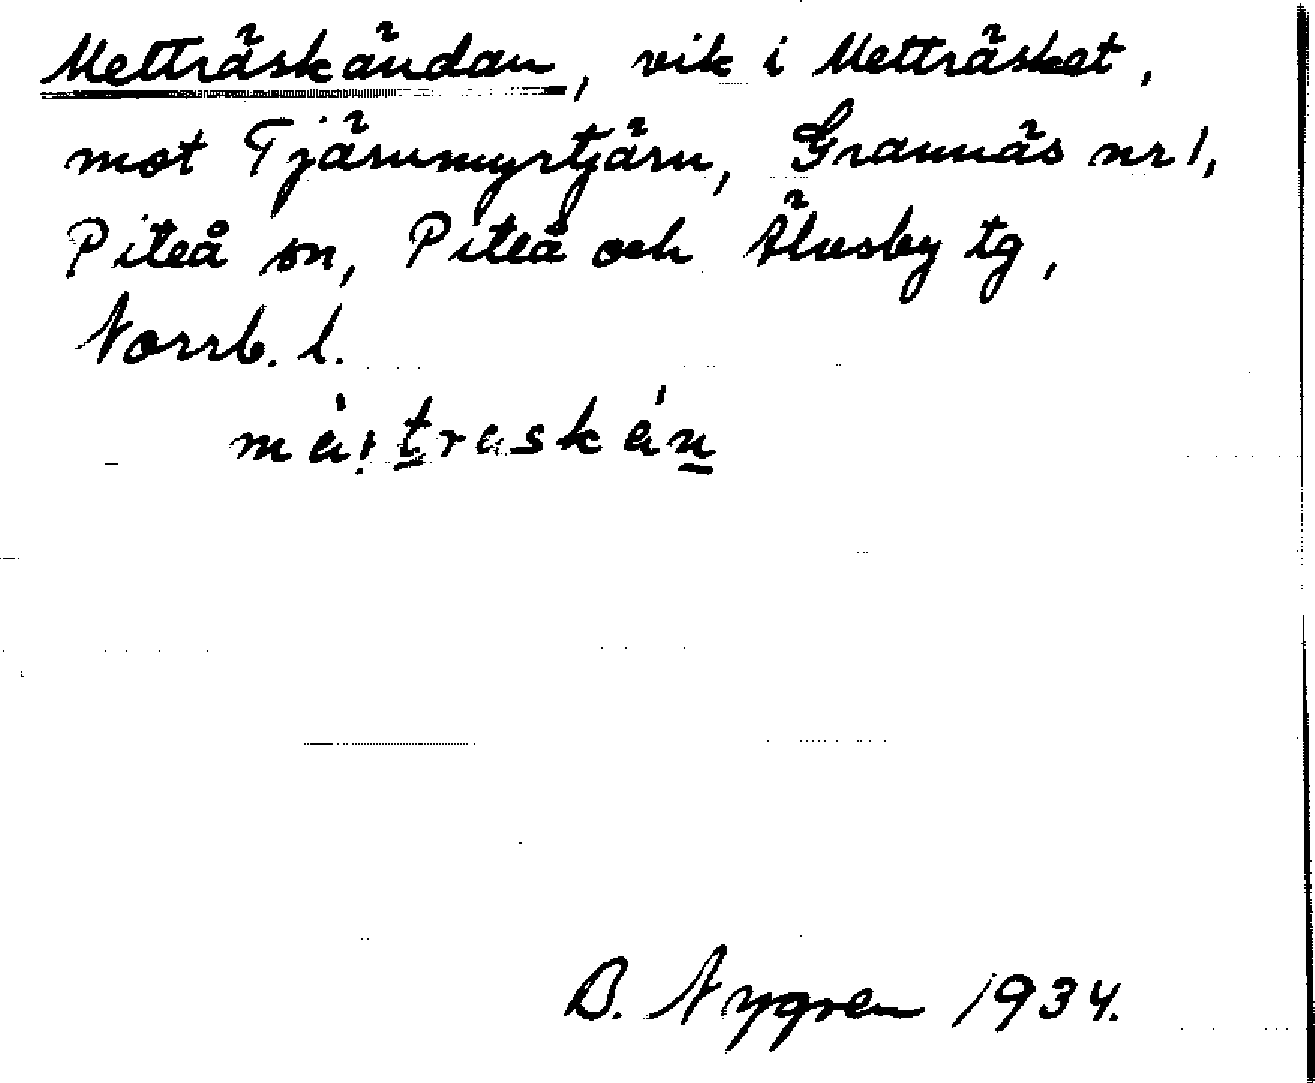 Metträskändan, vik i Metträsket,
mot Tjärnmyrtjärn, Grannäs nr 1,
Piteå sn, Piteå och Älvsby tg,
Norrb. l.
B. Nygren 1934.